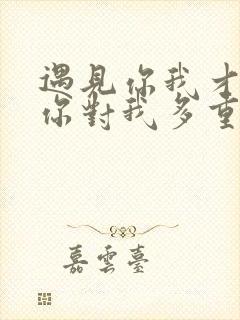 遇見你我才
你對我多重
嘉雲臺